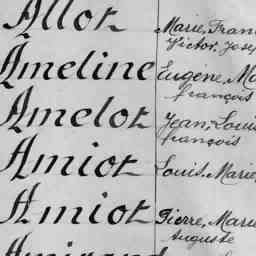 Allot Marie, Fran
Victor, Jose
Ameline Eugène, Ma
françois
Amelot Jean, Louis
françois
Amiot Louis, Marie,
Amiot Pierre, Marie
Auguste